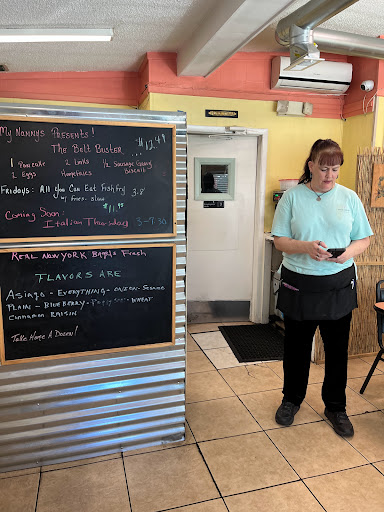 My Nanny's Presents!
The Belt Buster $12.49
1 Pancake 2 Links ½ Sausage Gravy
2 Eggs Homefries Biscuit
Fridays: All You Can Eat Fish fry 3-8
w/ fries - slaw $11.95
Coming Soon:
Italian Thursday 3-7:30
Real New York Bagels Fresh
FLAVORS ARE
Asiago - EVERYTHING - ONION - Sesame
PLAIN - BLUEBERRY - WHEAT
Cinnamon RAISIN
Take Home A Dozen!